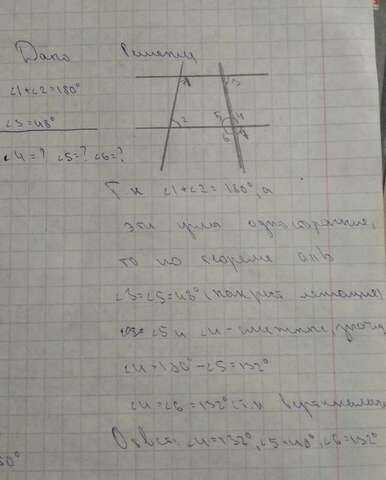 Дано Решение
∠1+∠2=180°
∠3=48°
∠4=? ∠5=? ∠6=?
1 3
2 5 4
6
Т к ∠1+∠2=180°, а
эти углы односторонние,
то по теореме a||b
∠3=∠5=48° (накрест лежащие)
∠5 и ∠4 - смежные, значит
∠4=180°-∠5=132°
∠4=∠6=132° т.к вертикальные
Ответ: ∠4=132°, ∠5=48°, ∠6=132°